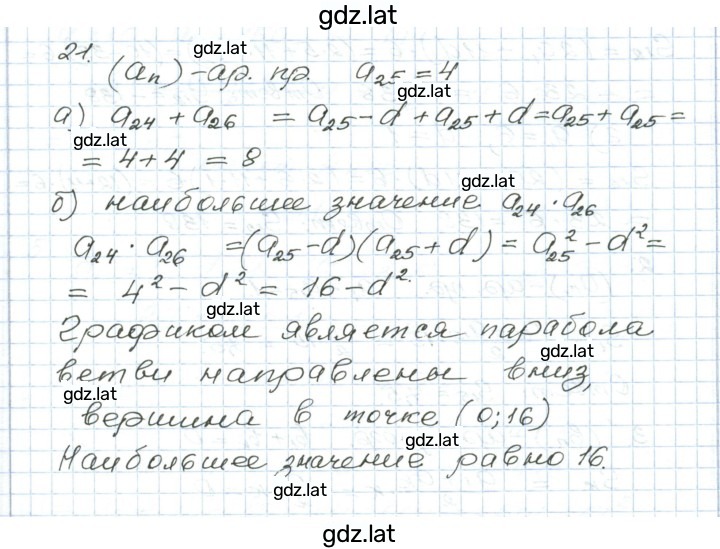 gdz.lat
21. gdz.lat
(aₙ) - ар. пр. a₂₅ = 4
gdz.lat
а) a₂₄ + a₂₆ = a₂₅ - d + a₂₅ + d = a₂₅ + a₂₅ =
gdz.lat
= 4 + 4 = 8
gdz.lat
б) наибольшее значение a₂₄ · a₂₆
a₂₄ · a₂₆ = (a₂₅ - d)(a₂₅ + d) = a₂₅² - d² =
= 4² - d² = 16 - d².
gdz.lat
Графиком является парабола
gdz.lat
ветви направлены вниз,
gdz.lat
вершина в точке (0;16)
gdz.lat
Наибольшее значение равно 16.
gdz.lat
gdz.lat